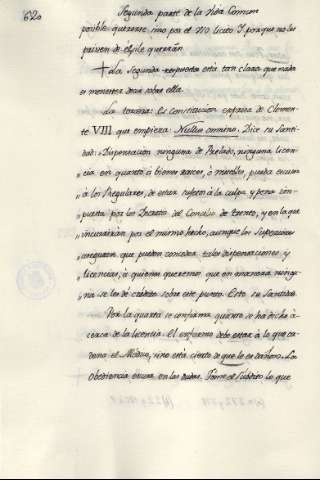 620
Segunda parte de la Vida Comun
posible quererse, sino por el no licito y porque no les
priven de el, le querrán.
+ La segunda respuesta está tan clara que nada
es menester decir sobre ella.
La tercera: Es constitucion expresa de Clemen-
te VIII que empieza: Nullus omnino. Dice su Santi-
dad: Dispensacion ninguna de Prelado, ninguna licen-
cia en quanto á bienes raices, ó muebles, pueda escusar
á los Regulares, de estar sujetos á la culpa y pena im-
puesta por los Decretos del Concilio de Trento, y en la que
incurrirán por el mismo hecho, aunque los Superiores
aseguren que pueden conceder tales dispensaciones y
licencias, á quienes queremos que en manera ningu-
na se les dé crédito sobre este punto. Esto su Santidad.
Por la quarta se confirma quanto se ha dicho á-
cerca de la licencia. El enfermo debe estar á lo que or-
dena el Médico, sino está cierto de que le es dañoso. La
obediencia escusa en las dudas. Tome el Subdito lo que